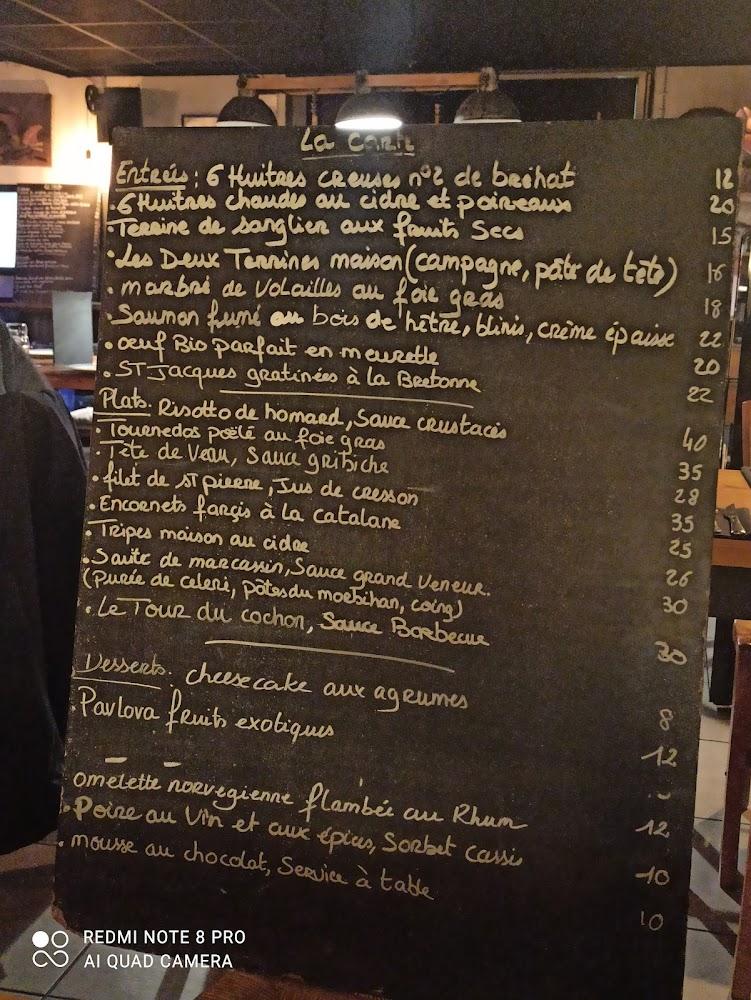 La Carte
Entrées : 6 Huitres creuses n°2 de brehat 12
. 6 Huitres chaudes au cidre et poireaux 20
. Terrine de sanglier aux fruits Secs 15
. Les Deux Terrines maison (campagne, pâté de tête) 16
. marbré de Volailles au foie gras 18
. Saumon fumé au bois de hêtre, blinis, crème épaisse 22
. œuf Bio parfait en meurette 20
. ST Jacques gratinées à la Bretonne 22
Plats. Risotto de homard, Sauce crustacés 40
. Tournedos poêlé au foie gras 35
. Tête de Veau, Sauce gribiche 28
. filet de ST pierre, Jus de cresson 35
. Encornets farçis à la catalane 25
. Tripes maison au cidre 26
. Sauté de marcassin, Sauce grand Veneur. 30
(Purée de celeri, pâtes du morbihan, coing)
. Le Tour du cochon, Sauce Barbecue 30
Desserts. cheesecake aux agrumes 8
. Pavlova fruits exotiques 12
omelette norvegienne flambée au Rhum 12
. Poire au Vin et aux épices, Sorbet cassis 10
. mousse au chocolat, Service à table 10
REDMI NOTE 8 PRO
AI QUAD CAMERA